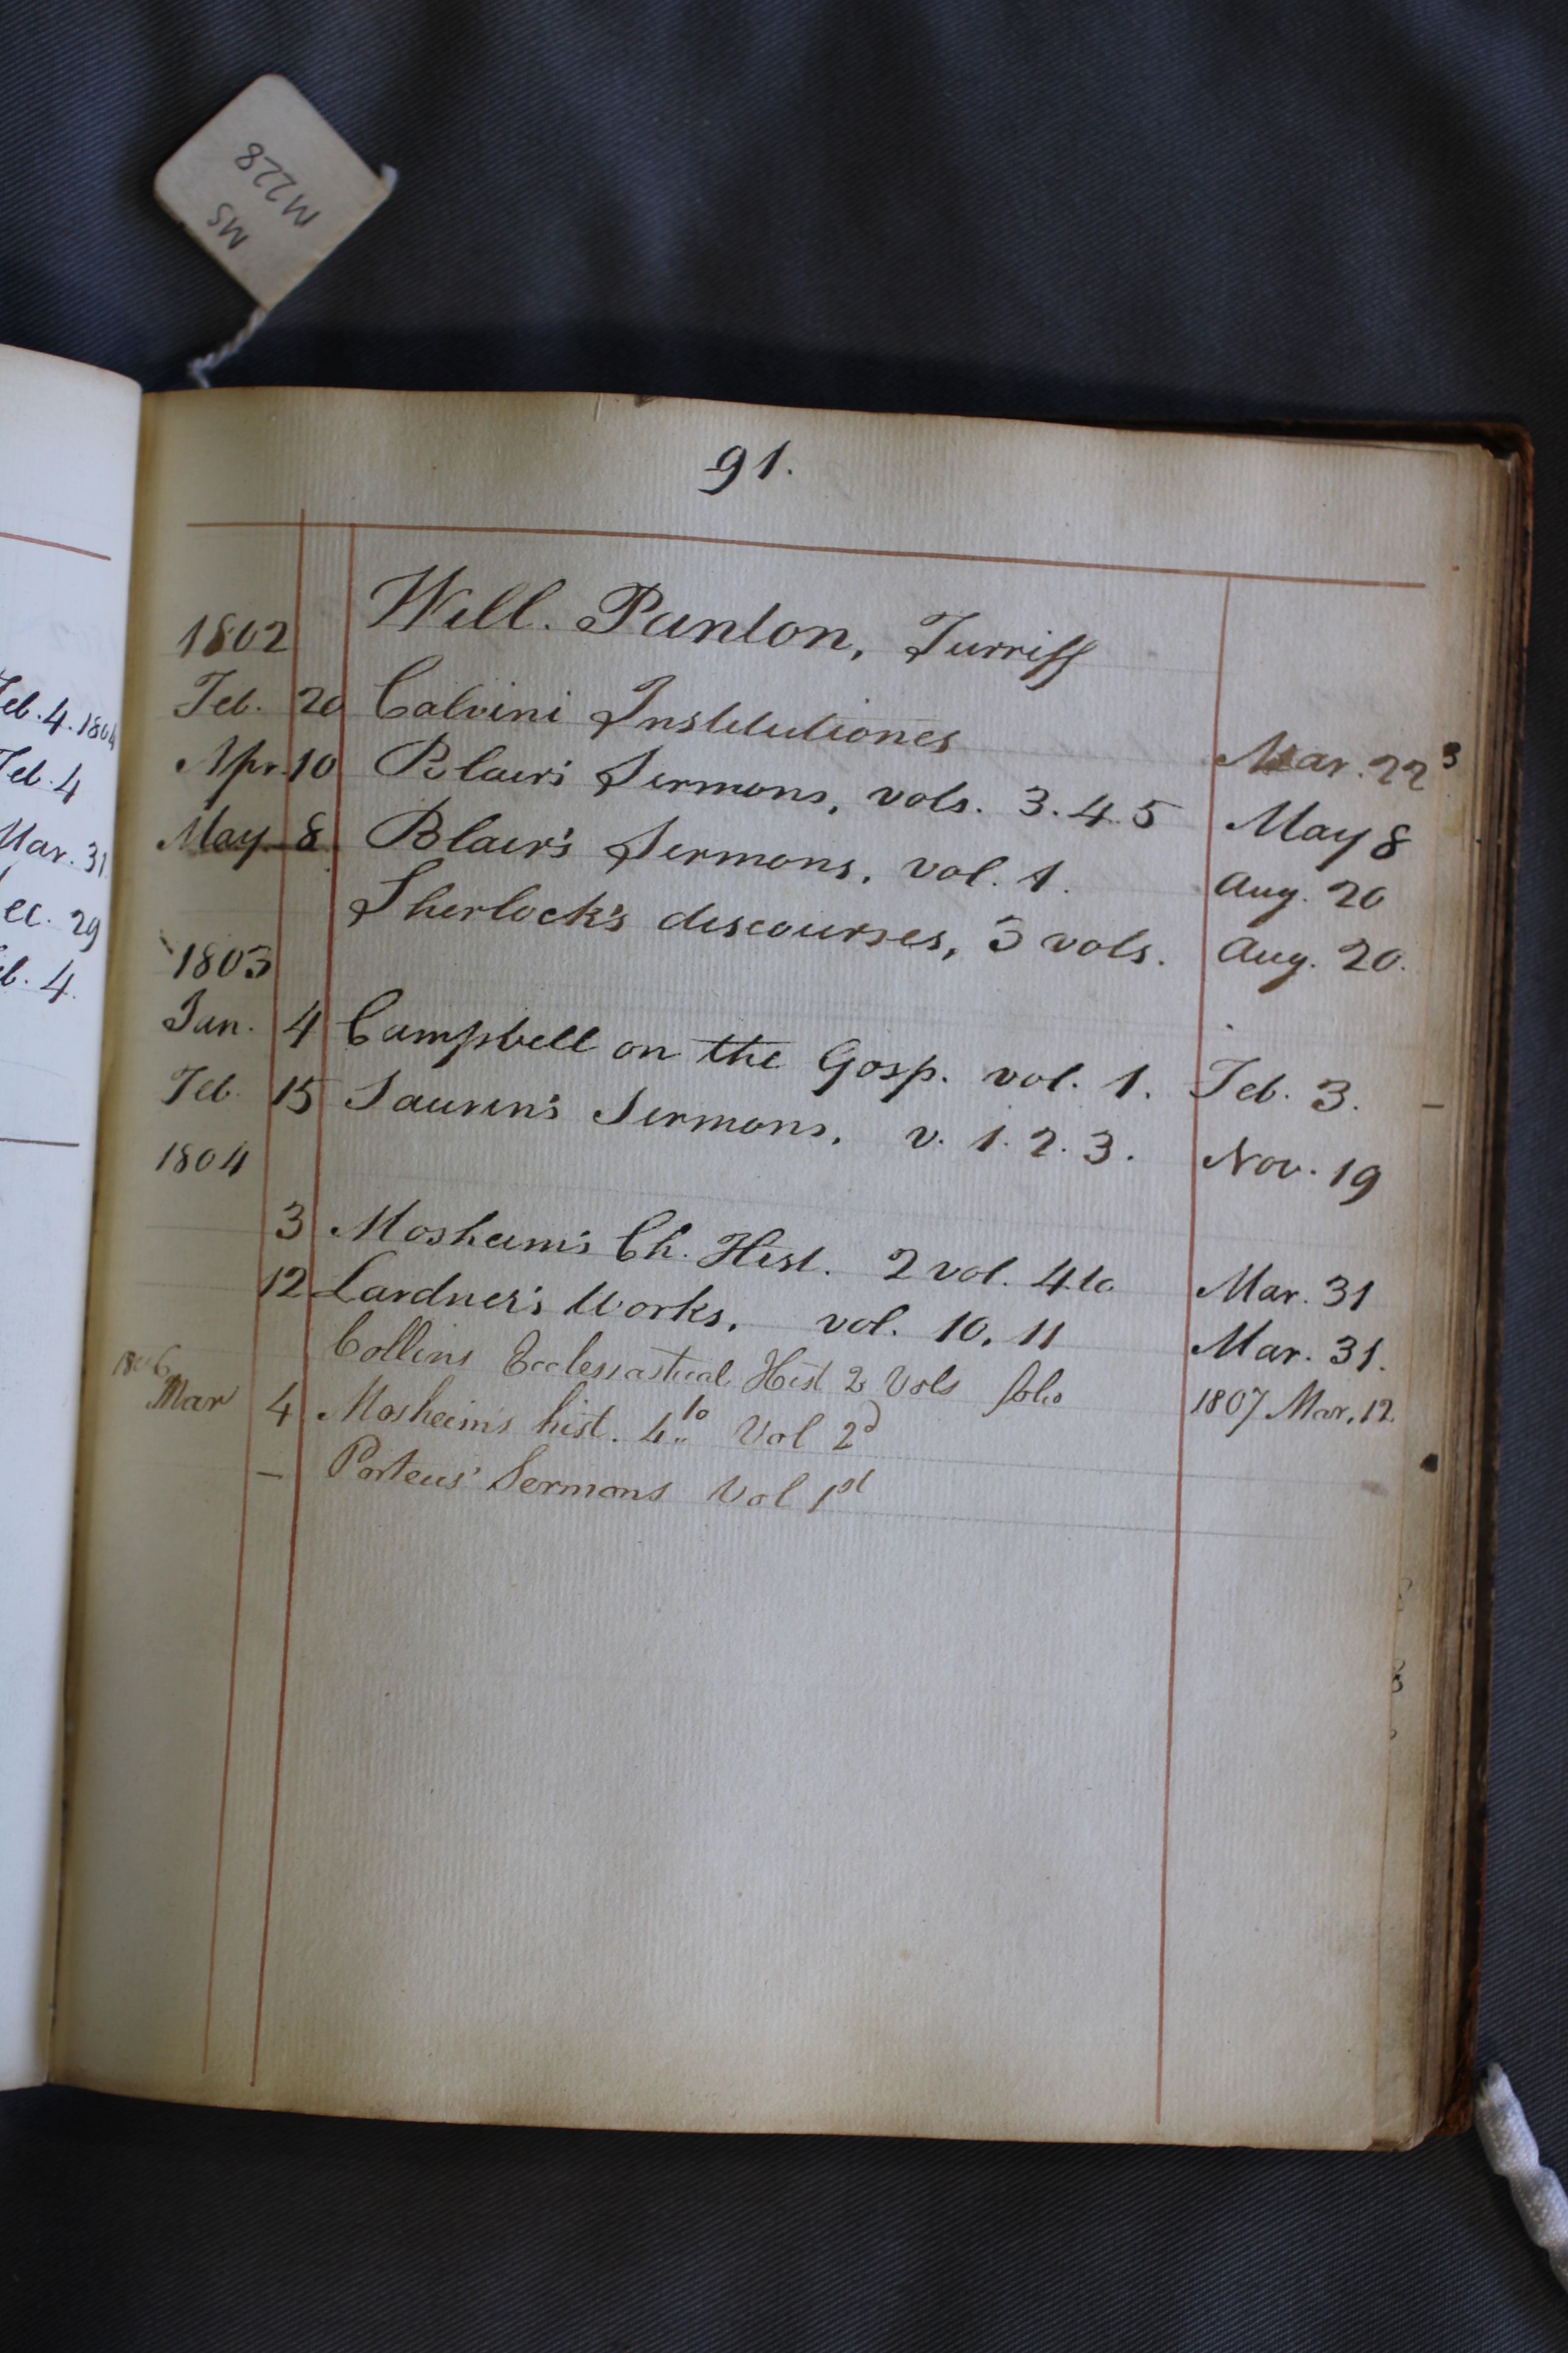 MS
M228
91.
Will. Panton, Turriff
1802
Feb. 20 Calvini Institutiones Mar. 22 3
Apr. 10 Blair's Sermons, vols. 3.4.5 May 8
May 8 Blair's Sermons, vol. 1. Aug. 20
Sherlock's discourses, 5 vols. Aug. 20.
1803
Jan. 4 Campbell on the Gosp. vol. 1. Feb. 3.
Feb. 15 Saurin's Sermons, v. 1. 2. 3. Nov. 19
1804
3 Mosheim's Ch. Hist. 2 vol. 4to Mar. 31
12 Lardner's Works, vol. 10, 11 Mar. 31.
Collins Ecclesiastical Hist 2 Vols folio 1807 Mar. 12.
1806
Mar 4 Mosheim's hist. 4to Vol 2d
— Porteus' Sermons Vol 1st
eb. 4. 1804
Feb. 4
Mar. 31
ec. 29
b. 4.